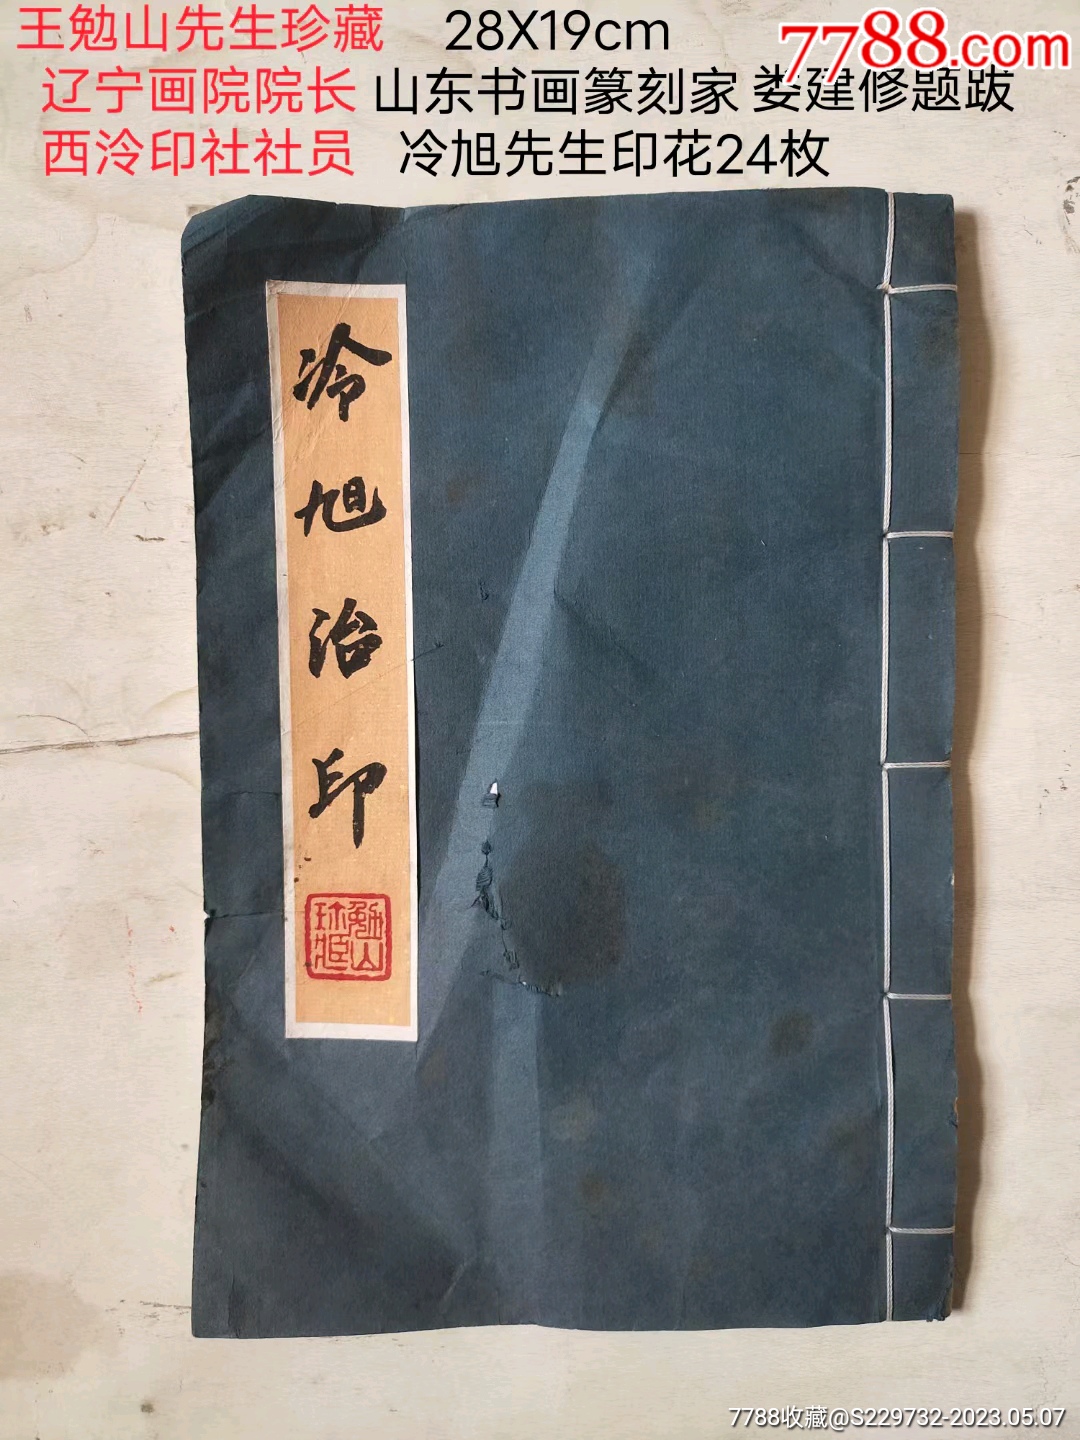 王勉山先生珍藏 28X19cm
7788.com
辽宁画院院长 山东书画篆刻家 娄建修题跋
西泠印社社员 冷旭先生印花24枚
冷旭治印
勉山珎臧
7788收藏@S229732-2023.05.07